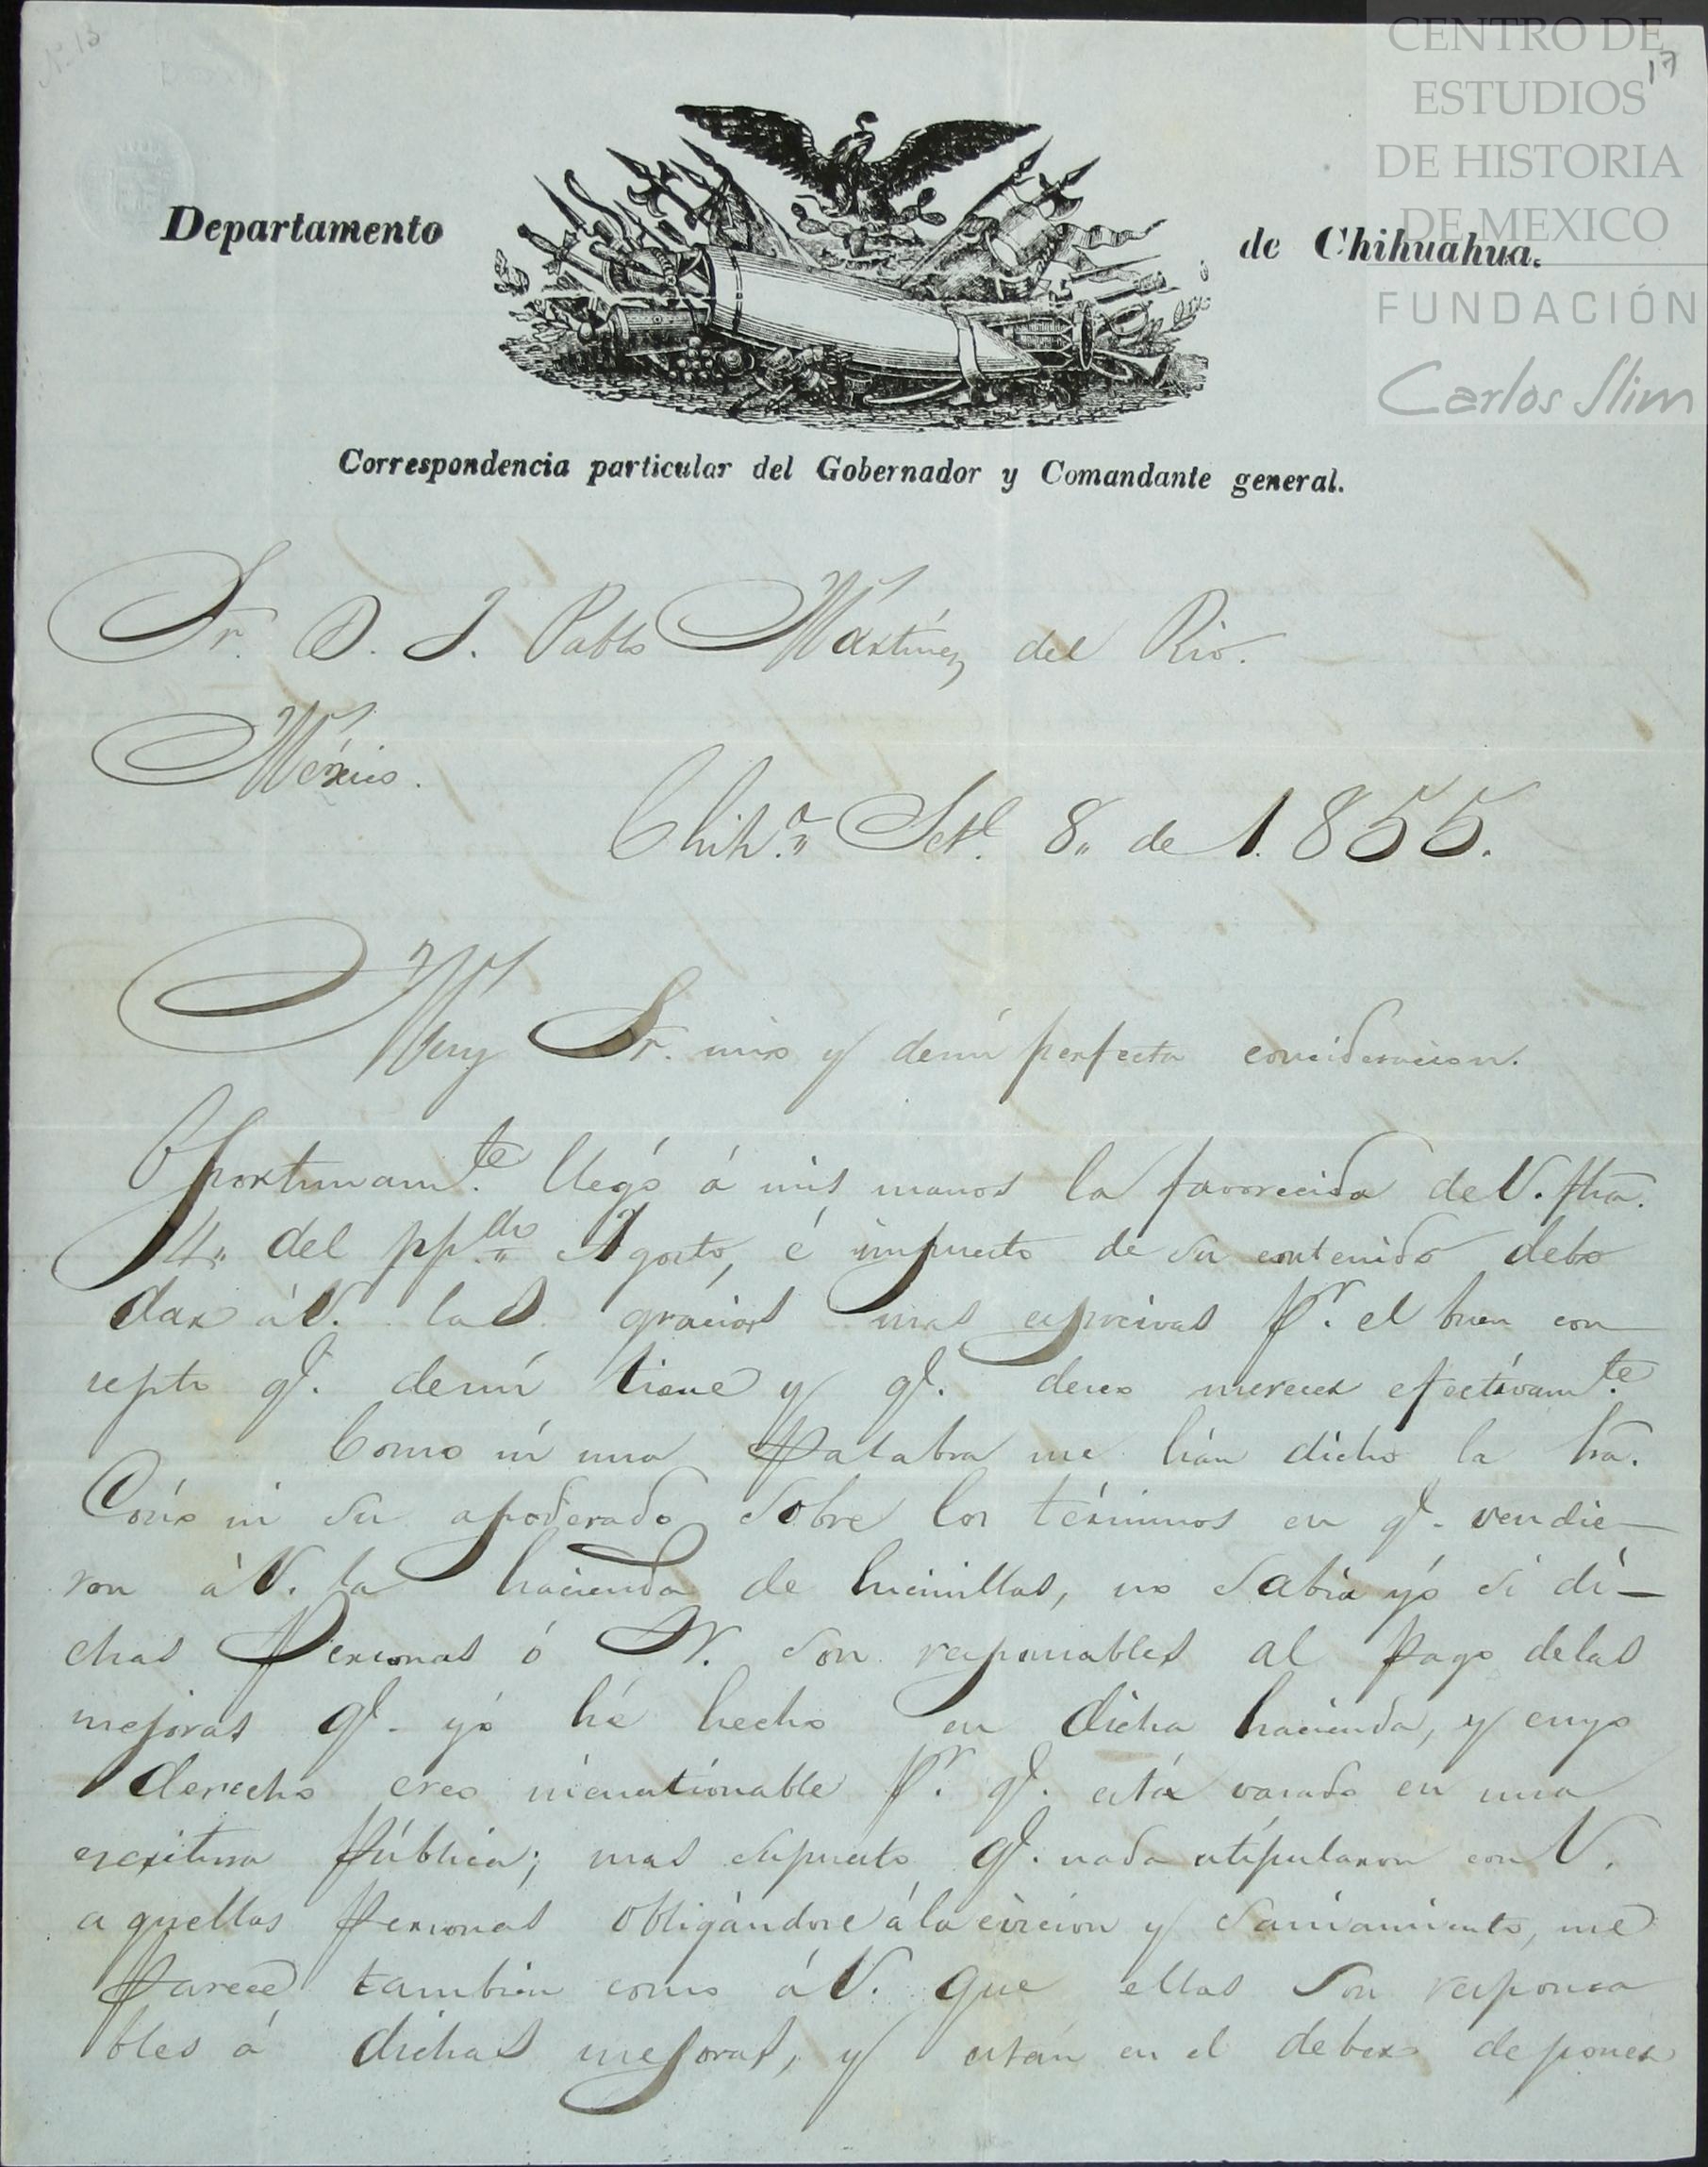 N. 13
17
CENTRO DE
ESTUDIOS
DE HISTORIA
DE MEXICO
FUNDACIÓN
Carlos Slim
Departamento de Chihuahua.
Correspondencia particular del Gobernador y Comandante general.
Sr. D. J. Pablo Martínez del Rio.
México.
Chih.a Set.e 8,, de 1.855.
Muy Sr. mio y demi perfecta concideracion.
Oportunam.te llegó á mis manos la favorecida de V. fha.
14,, del pp.do Agosto, é impuesto de su contenido debo
dar á V. las gracias mas esprecivas p.r el buen con
septo q.e demi tiene y q.e deceo merecer efectívam.te
Como ni una palabra me hán dicho la Sra.
ni su apoderado sobre los términos en q.e vendie-
ron á V. la hacienda de Encinillas, no sabia yó si di-
chas Personas ó V. son responsables al pago delas
mejoras q.e yó hé hecho en dicha hacienda, y cuyo
derecho creo incuestionable p.r q.e está vasado en una
escritura pública; mas supuesto q.e nada estipularon con V.
aquellas personas obligándose á la evicion y saniamiento, me
parece tambien como á V. que ellas son responsa
bles á dichas mejoras, y están en el deber de poner